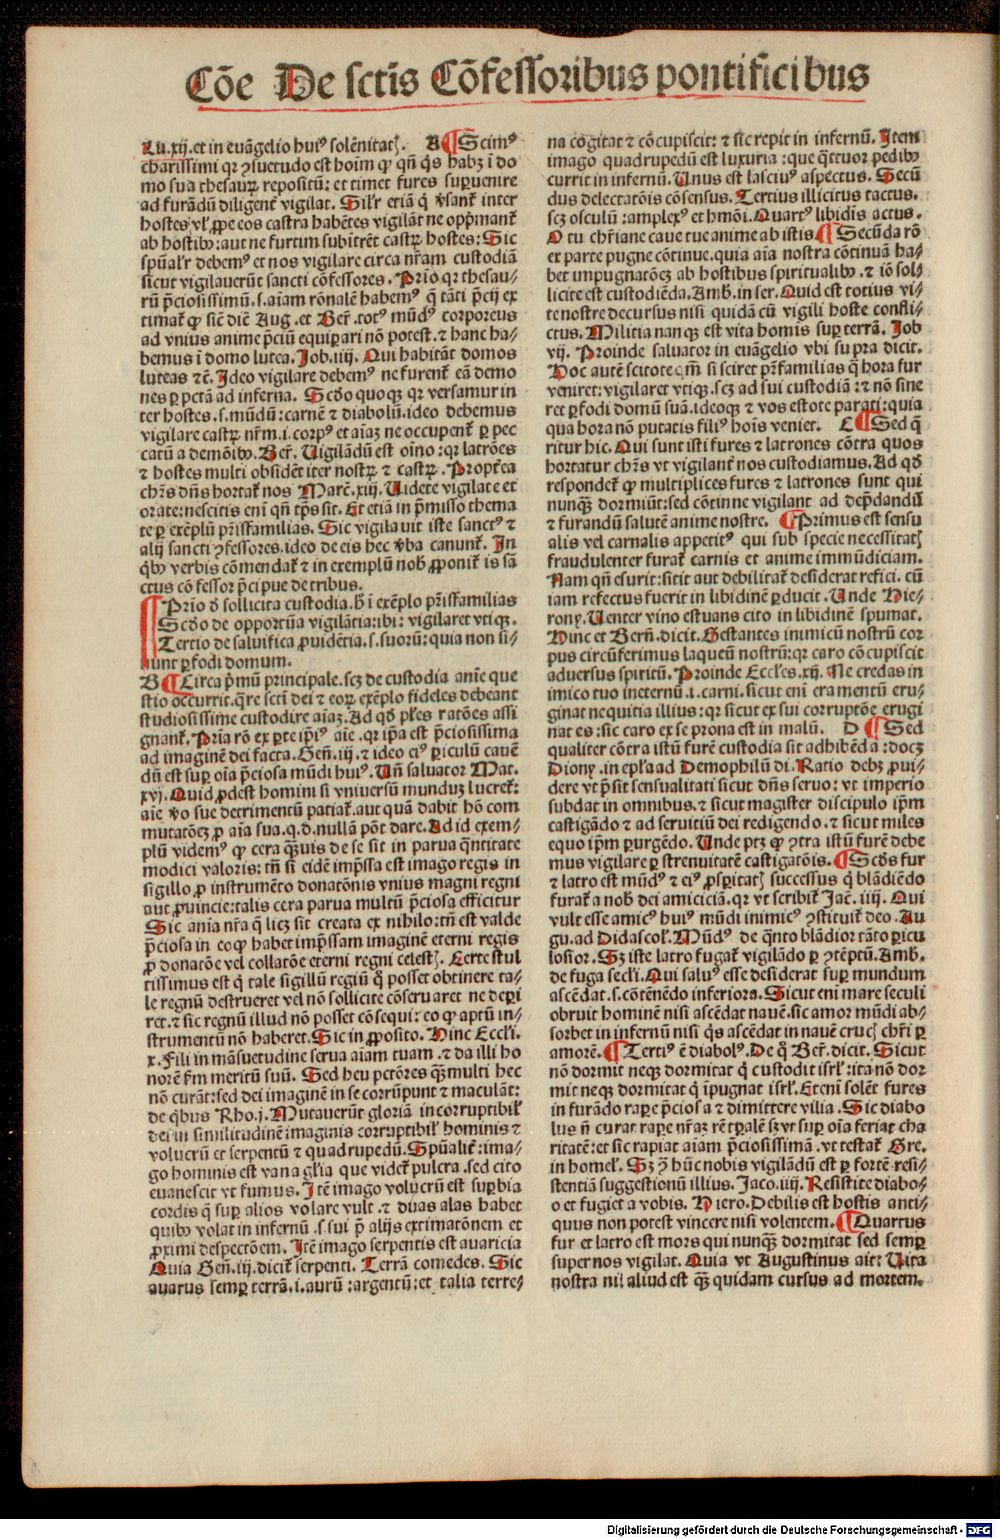 Cōe De sctīs Cōfessoribus pontificibus
Lu.xij.et in euāgelio huiꝰ solēnitatꝭ. A ¶ Scimꝰ
charissimi qr ꝯsuetudo est hoīm ꝙ qn̄ qͥs habꝫ ī do
mo sua thesauꝝ repositū: et timet fures suꝑuenire
ad furādū diligent̄ vigilat. Sil'r etiā q̄ v̓sant̄ inter
hostes vl̓ ꝓpe eos castra habētes vigilāt ne opp̄mant̄
ab hostibꝰ: aut ne furtim subītrēt castꝝ hostes: Sic
spūal'r debemꝰ et nos vigilare circa nr̄am custodiā
sicut vigilauerūt sancti cōfessores. Prīo qr thesau⸗
rū p̄ciosissimū.s.aīam rōnalē habemꝰ q̄ tāti p̄cij ex
timat̄ ꝙ sic̄ dic̄ Aug.et Ber̄.totꝰ mūdꝰ corporeus
ad vnius anime p̄ciū equiꝑari nō potest.⁊ hanc ha⸗
bemus ī domo lutea. Job.iiij. Qui habitāt domos
luteas ⁊c̄. Ideo vigilare debemꝰ ne furent̄ eā demo
nes ꝑ pctā ad inferna. Scd̓o quoqꝫ qr versamur in
ter hostes.s.mūdū: carnē ⁊ diabolū.ideo debemus
vigilare castꝝ nr̄m.i.corpꝰ et aīaꝫ ne occupent̄ ꝑ pec
catū a demōibꝰ. Ber̄. Uigilādū est oīno: qr latrōes
⁊ hostes multi obsidēt iter nostꝝ ⁊ castꝝ. Propt̄ea
chr̄s dn̄s hortat̄ nos Marc̄.xiij. Uidete vigilate et
orate: nescitis enī qn̄ tp̄s sit. Et etiā in p̄misso thema
te ꝑ exēplū pr̄isfamilias. Sic vigilauit iste sanctꝰ ⁊
alij sancti ꝯfessores.ideo de eis hec v̓ba canunt̄. In
qͥbꝰ verbis cōmendat̄ ⁊ in exemplū nob̄ ꝓponit̄ is sā
ctus cōfessor p̄cipue de tribus.
¶ Prīo d̓ sollicita custodia.b̄ ī exēplo pr̄isfamilias
Scd̓o de opportūa vigilātia: ibi: vigilaret vtiqꝫ.
Tertio de saluifica ꝓuidētia.s.suorū: quia non si⸗
ļunt ꝑfodi domum.
B ¶ Circa p̄mū principale.scꝫ de custodia anīe que
stio occurrit.q̄re scti dei ⁊ eoꝝ exēplo fideles debeant
studiosissime custodire aīaꝫ. Ad qd̓ p̄tes ratōes assi
gnant̄. Prīa rō ex ꝑte ip̄iꝰ aīe.qr ip̄a est p̄ciosissima
ad imaginē dei facta. Gen̄.iij.⁊ ideo eiꝰ ꝑiculū cauē
dū est suꝑ oīa p̄ciosa mūdi huiꝰ. Un̄ saluator Mat.
xvj. Quid ꝓdest homini si vniuersū munduꝫ lucret̄:
aīe v̓o sue detrimentū patiat̄.aut quā dabit hō com
mutatōeꝫ ꝓ aīa sua.q.d.nullā pōt dare. Ad id exem⸗
plū videmꝰ ꝙ cera qͣꝫuis de se sit in parua qͣntitate
modici valoris: tn̄ si eidē imp̄ssa est imago regis in
sigillo ꝓ instrumēto donatōnis vnius magni regni
aut ꝓuincie: talis cera parua multū p̄ciosa efficitur
Sic ania nr̄a qͣ̄ licꝫ sit creata ex nihilo: tn̄ est valde
p̄ciosa in eo ꝙ habet imp̄ssam imaginē eterni regis
ꝓ donatōe vel collatōe eterni regni celestꝭ. Certe stul
tissimus est q̄ tale sigillū regiū qͦ posset obtinere ta⸗
le regnū destrueret vel nō sollicite cōseruaret ne deꝑi
ret.⁊ sic regnū illud nō posset cōsequi: eo ꝙ aptū in⸗
strumentū nō haberet. Sic in ꝓposito. Hinc Eccl'i.
x. Fili in māsuetudine serua aīam tuam.⁊ da illi ho
norē ẜm meritū suū. Sed heu pctōres qͣꝫmulti hec
nō curāt: sed dei imaginē in se corrūpunt ⁊ maculāt:
de qͥbus Rho.j. Mutauerūt gloriā incorruptibil̓
dei in similitudinē imaginis corruptibil̓ hominis ⁊
volucrū et serpentū ⁊ quadrupedū. Spūalit̓: ima⸗
go hominis est vana gl'ia que videt̄ pulcra.sed cito
euanescit vt fumus. Itē imago volucrū est suꝑbia
cordis q̄ suꝑ alios volare vult.⁊ duas alas habet
quibꝰ volat in infernū.s.sui p̄ alijs extimatōnem et
ꝓximi despectōem. Itē imago serpentis est auaricia
Quia Gen̄.iij.dicit̄ serpenti. Terrā comedes. Sic
auarus semꝑ terrā.i.aurū: argentū: et talia terre⸗
na cogitat ⁊ cōcupiscit: ⁊ sic repit in infernū. Item
imago quadrupedū est luxuria: que q̄ttuor pedibꝰ
currit in infernū. Unus est lasciuꝰ aspectus. Secū
dus delectatōis cōsensus. Tertius illicitus tactus.
scꝫ osculū: amplexꝰ et hmōi. Quartꝰ libidīs actus.
O tu chr̄iane caue tue anime ab istis. ¶ Secūda rō
ex parte pugne cōtinue.quia aīa nostra cōtinuā ha⸗
bet impugnatōeꝫ ab hostibus spiritualibꝰ.⁊ iō sol⸗
licite est custodiēda. Amb.in ser. Quid est totius vi⸗
te nostre decursus nisi quidā cū vigili hoste confli⸗
ctus. Militia nanqꝫ est vita homīs suꝑ terrā. Job
vij. Proinde saluator in euāgelio vbi supra dicit.
Hoc autē scitote qm̄ si sciret pr̄familias qͣ hora fur
veniret: vigilaret vtiqꝫ.scꝫ ad sui custodiā: ⁊ nō sine
ret ꝑfodi domū suā.ideoqꝫ ⁊ vos estote parati: quia
qua hora nō putatis filiꝰ hoīs veniet. C ¶ Sed q̄
ritur hic. Qui sunt isti fures ⁊ latrones cōtra quos
hortatur chr̄s vt vigilant̄ nos custodiamus. Ad qd̓
respondet̄ ꝙ multiplices fures ⁊ latrones sunt qui
nunqͣꝫ dormiūt: sed cōtinne vigilant ad dep̄dandū
⁊ furandū salutē anime nostre. ¶ Primus est sensu
alis vel carnalis appetitꝰ qui sub specie necessitatꝭ
fraudulenter furat̄ carnis et anime immūdiciam.
Nam qn̄ esurit: sitit aut debilitat̄ desiderat refici. cū
iam refectus fuerit in libidinē ꝑducit. Unde Hie⸗
rony. Uenter vino estuans cito in libidinē spumat.
Hinc et Bern̄.dicit. Gestantes inimicū nostrū cor
pus circūferimus laqueū nostrū: qr caro cōcupiscit
aduersus spiritū. Proinde Eccl'es.xij. Ne credas in
imico tuo ineternū.i.carni.sicut enī eramentū eru⸗
ginat nequitia illius: qr sicut ex sui corruptōe erugi
nat es: sic caro ex se prona est in malū. D ¶ Sed
qualiter cōtra istū furē custodia sit adhibēda: docꝫ
Diony.in ep̄la ad Demophilū di. Ratio debꝫ ꝓui⸗
dere vt p̄sit sensualitati sicut dn̄s seruo: vt imperio
subdat in omnibus.⁊ sicut magister discipulo ip̄m
castigādo ⁊ ad seruitiū dei redigendo.⁊ sicut miles
equo ip̄m ꝑurgēdo. Unde ptꝫ ꝙ ꝯtra istū furē debe
mus vigilare ꝑ strenuitatē castigatōis. ¶ Scd̓s fur
⁊ latro est mūdꝰ ⁊ eiꝰ ꝓsꝑitatꝭ successus q̄ blādiēdo
furat̄ a nob dei amiciciā.qr vt scribit̄ Jac̄.iiij. Qui
vult esse amicꝰ huiꝰ mūdi inimicꝰ ꝯstituit̄ deo. Au
gu.ad Didascol̓. Mūdꝰ de qͣnto blādior tāto ꝑicu
losior. Sꝫ iste latro fugat̄ vigilādo ꝑ ꝯtēptū. Amb.
de fuga secl'i. Qui saluꝰ esse desiderat suꝑ mundum
ascēdat.s.cōtēnēdo inferiora. Sicut enī mare seculi
obruit hominē nisi ascēdat nauē.sic amor mūdi ab⸗
sorbet in infernū nisi qͥs ascēdat in nauē crucꝭ chr̄i ꝑ
amorē. ¶ Tertiꝰ ē diabolꝰ. De qͦ Ber̄.dicit. Sicut
nō dormit neqꝫ dormitat qͥ custodit isrl̓: ita nō dor
mit neqꝫ dormitat qͥ īpugnat isrl̓. Etenī solēt fures
in furādo raꝑe p̄ciosa ⁊ dimittere vilia. Sic diabo
lus n̄ curat raꝑe nr̄aꝫ rē tꝑalē sꝫ vt suꝑ oīa feriat cha
ritatē: et sic rapiat aīam p̄ciosissimā.vt testat̄ Gre.
in homel̓. Sꝫ ꝯ hūc nobis vigilādū est ꝑ fortē resi⸗
stentiā suggestionū illius. Jaco.iiij. Resistite diabo⸗
o et fugiet a vobis. Hiero. Debilis est hostis anti⸗
quus non potest vincere nisi volentem. ¶ Quartus
fur et latro est mors qui nunqͣꝫ dormitat sed semꝑ
super nos vigilat. Quia vt Augustinus ait: Uita
nostra nil aliud est qͣꝫ quidam cursus ad mortem.
Digitalisierung gefördert durch die Deutsche Forschungsgemeinschaft - DFG